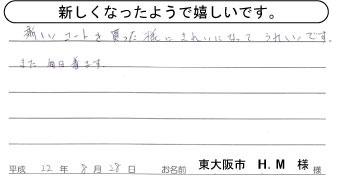 新しくなったようで嬉しいです。
新しいコートを買った様にきれいになってうれしいです。
また毎日着ます。
平成 22 年 8 月 28 日 お名前 東大阪市 H.M 様 様